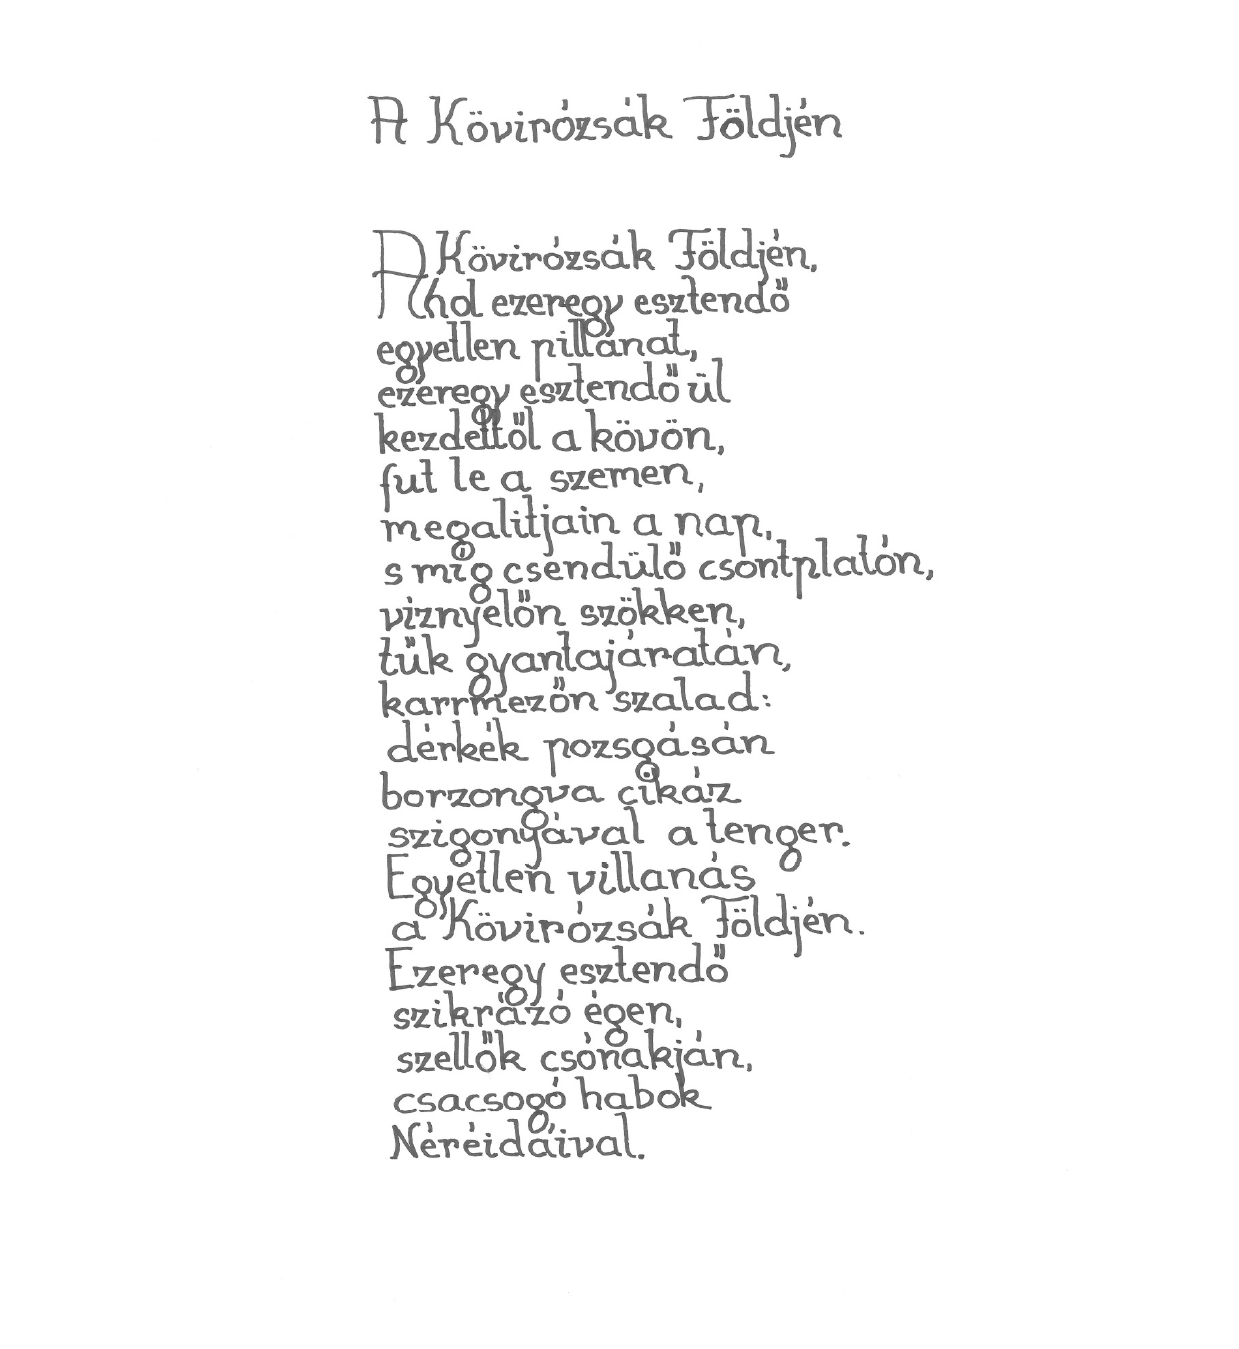 A Kövirózsák Földjén
A Kövirózsák Földjén,
Ahol ezeregy esztendő
egyetlen pillanat,
ezeregy esztendő ül
kezdettől a kövön,
fut le a szemen,
megalitjain a nap,
s mig csendülő csontplatón,
viznyelőn szökken,
tűk gyantajáratán,
karrmezőn szalad:
dérkék pozsgásán
borzongva cikáz
szigonyával a tenger.
Egyetlen villanás
a Kövirózsák Földjén.
Ezeregy esztendő
szikrázó égen,
szellők csónakján,
csacsogó habok
Néréidáival.